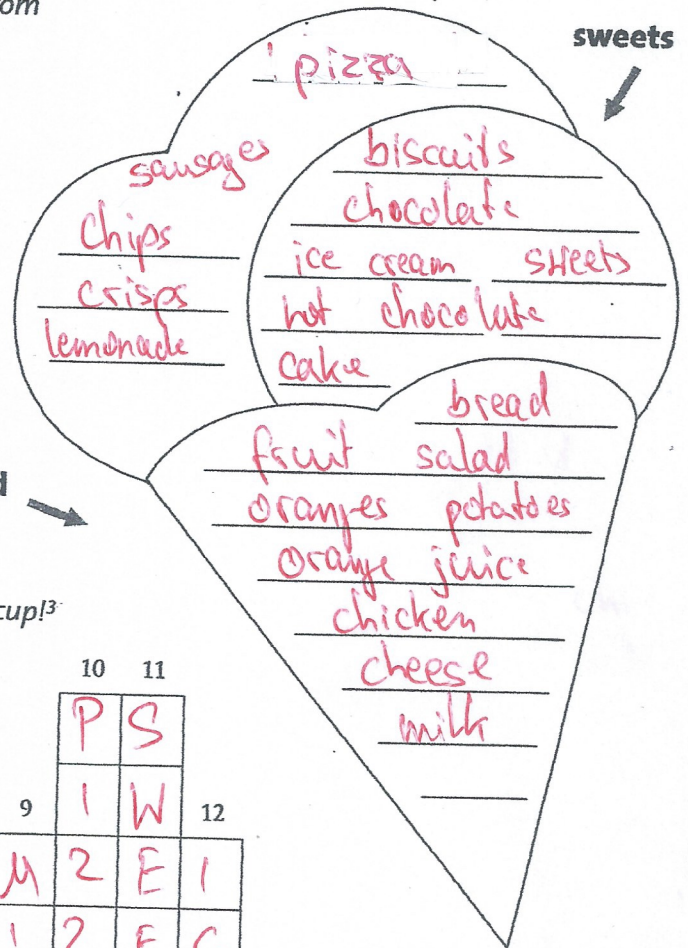 om
sweets
pizza
sausages
chips
crisps
lemonade
biscuits
chocolate
ice cream sweets
hot chocolate
cake
bread
fruit salad
oranges potatoes
orange juice
chicken
cheese
milk
cup!³
10 11
P S
9 I W 12
M Z E I
I Z E C